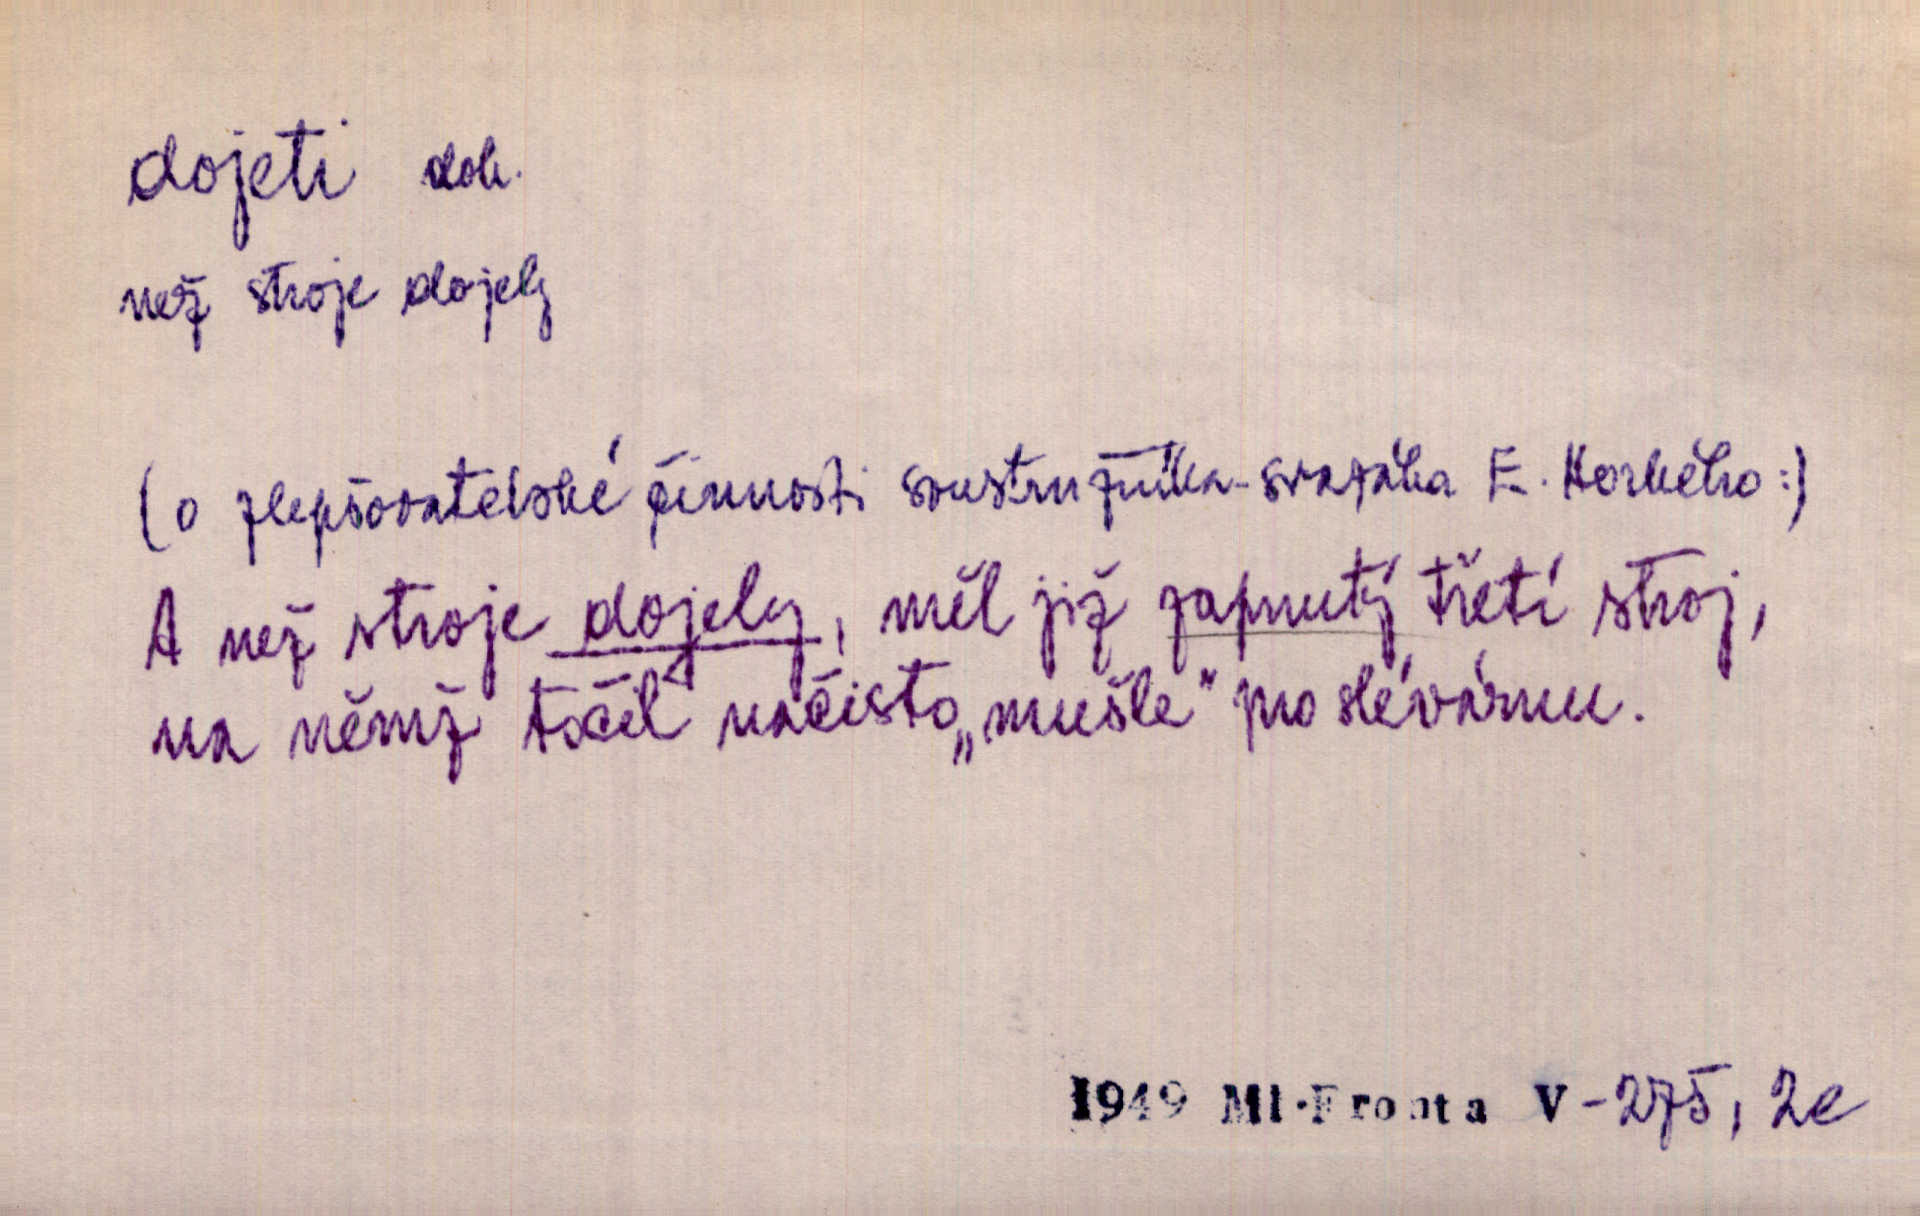 dojeti dok.
než stroje dojely
(o zlepšovatelské činnosti soustružníka-svazáka E. Horkého:)
A než stroje dojely, měl již zapnutý třetí stroj,
na němž točil načisto „mušle" pro slévárnu.
1949 Ml.Fronta V-275, 2c